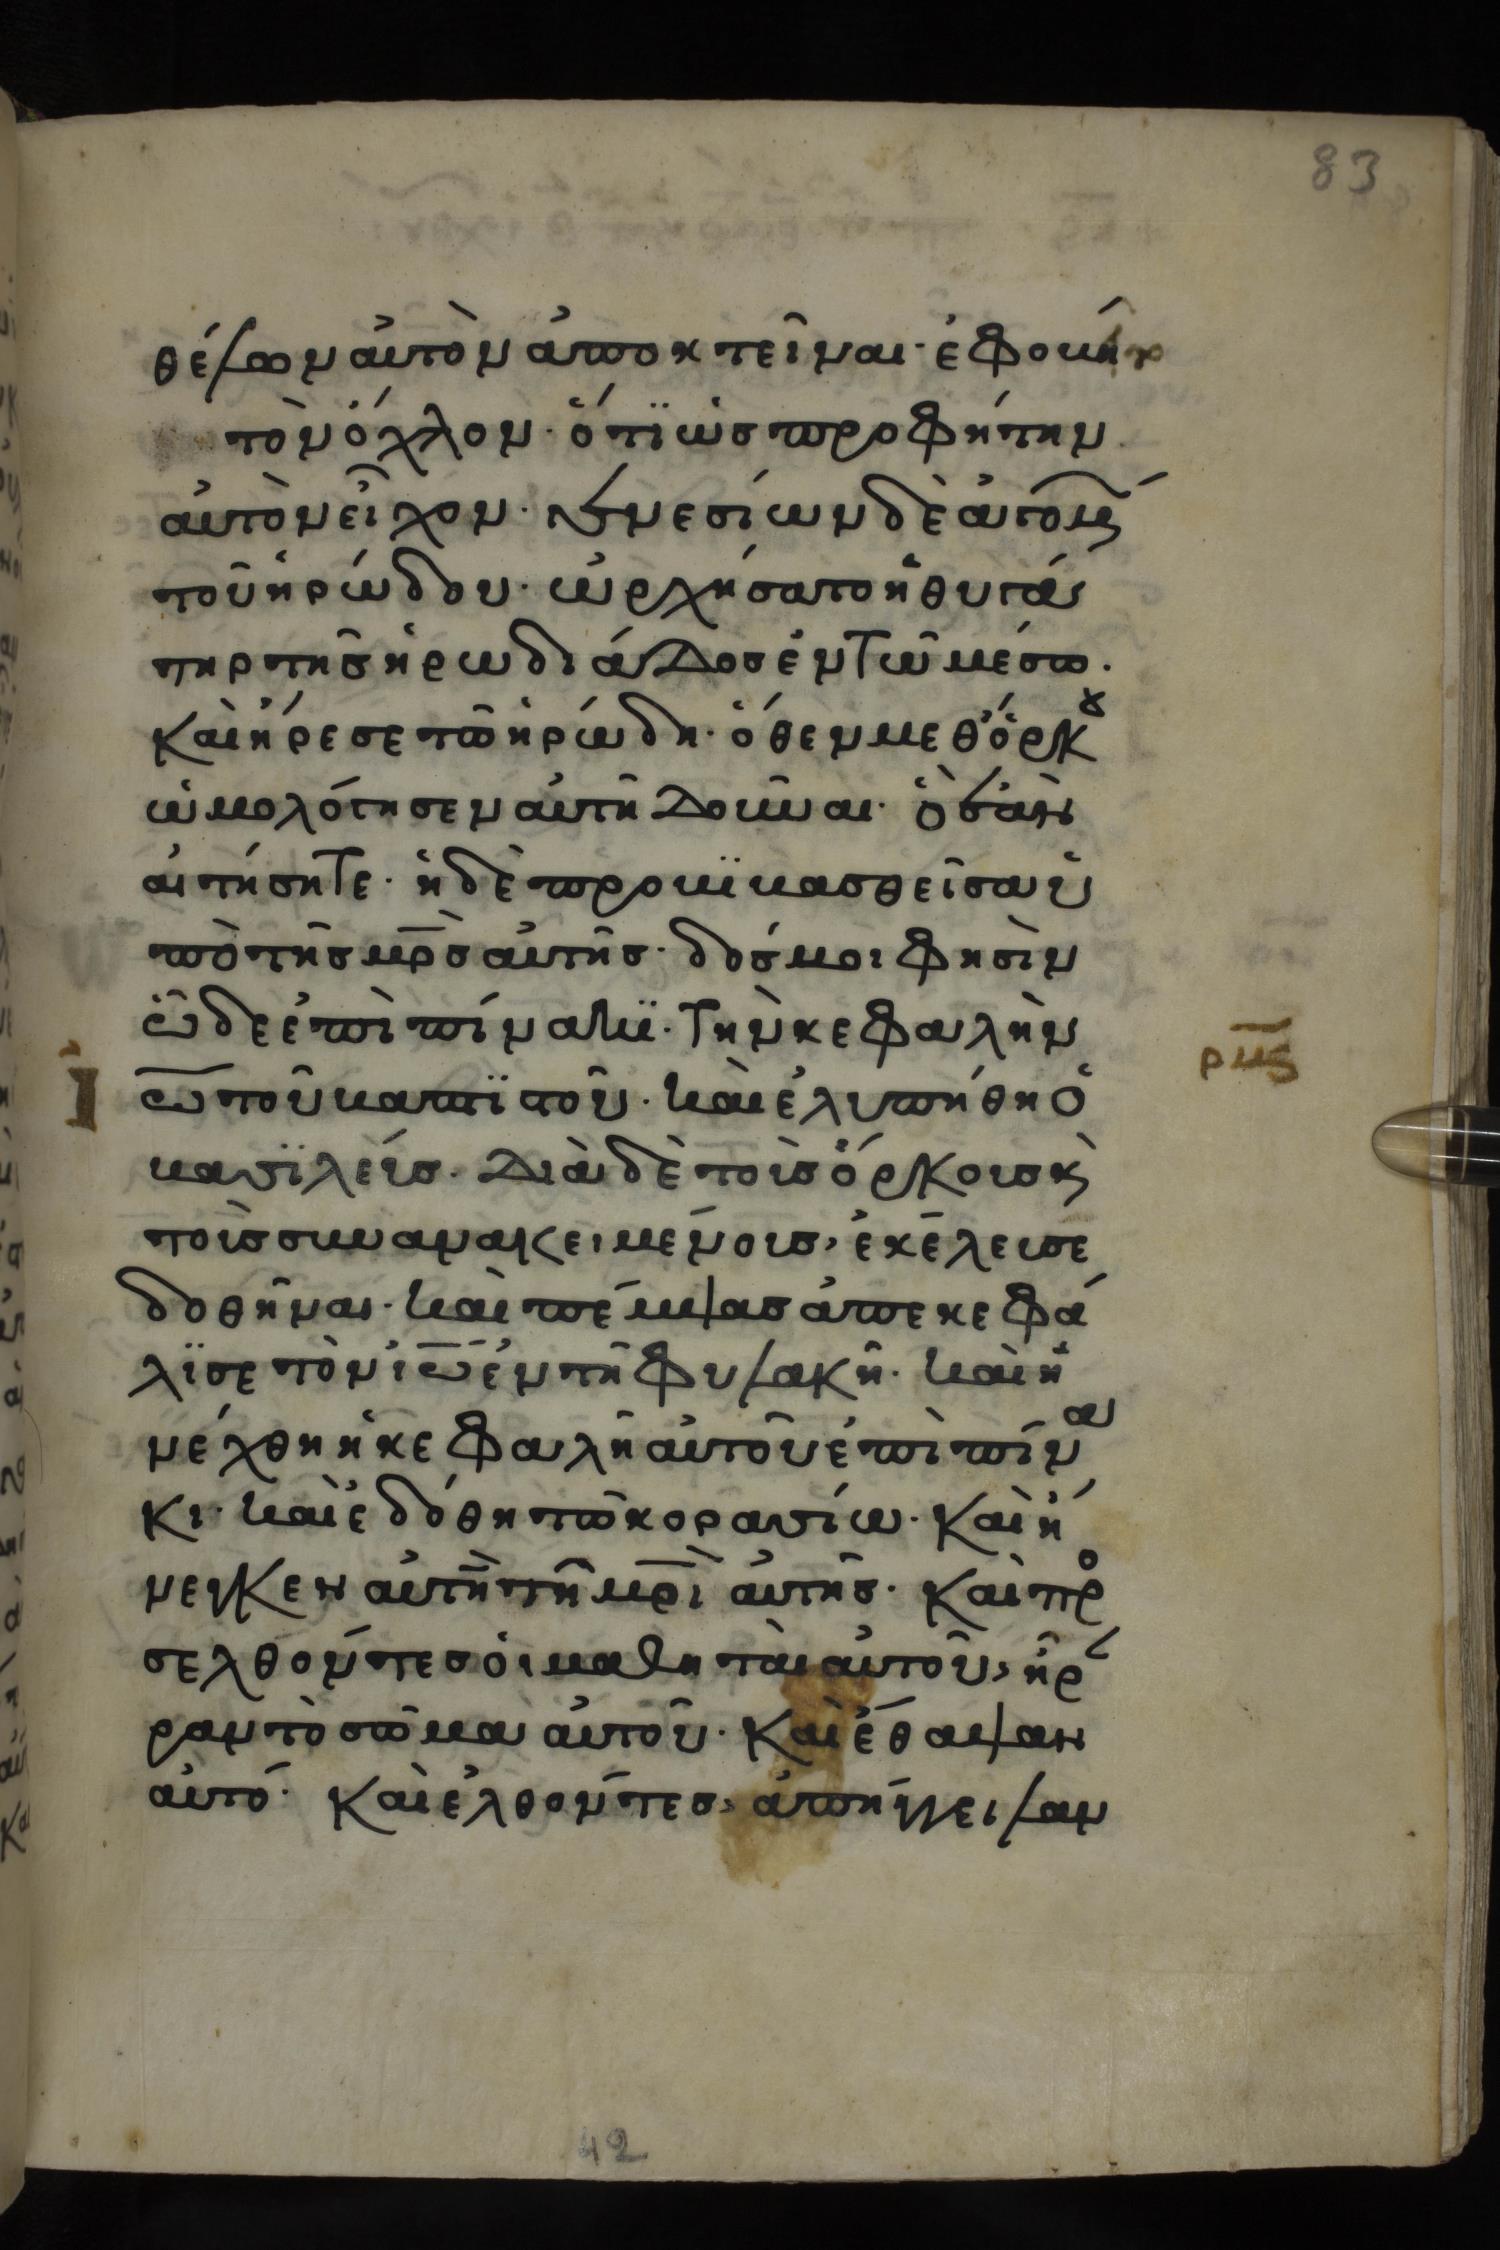 83
θέλων αὐτὸν ἀποκτεῖναι· ἐφοβήθη
τὸν ὄχλον· ὅτϊ ὡς προφήτην
αὐτὸν εἶχον· γενεσίων δὲ ἀγομένων
τοῦ ἡρώδου· ὠρχήσατο ἡ θυγά
τηρ τῆς ἡρωδιάδος ἐν τῶ μέσω·
καὶ ἤρεσε τῶ ἡρώδη· ὅθεν μεθ' ὅρκου
ὡμολόγησεν αὐτῆ δοῦναι· ὃ ἐὰν
αἰτήσητε· ἡ δὲ προβϊβασθεῖσα ὑ
πὸ τῆς μρ̅ς αὐτῆς· δός μοι φησὶν
ὧδε ἐπὶ πίνακϊ· τὴν κεφαλὴν
ιω̅ τοῦ βαπτϊστοῦ· καὶ ἐλυπήθη ὁ
ρμς
βασϊλεύς· διὰ δὲ τοὺς ὅρκους κὶ
τοὺς συνανακειμένους, ἐκέλευσε
δοθῆναι· καὶ πέμψας ἀπεκεφά
λϊσε τὸν ἰω̅ ἐν τῆ φυλακῆ· καὶ ἠ
νέχθη ἡ κεφαλὴ αὐτοῦ ἐπὶ πίνα
κι· καὶ ἐδόθη τῶ κορασίω· καὶ ἤ
νεγκεν αὐτὴν τῆ μρ̅ὶ αὐτῆς· καὶ προ
σελθόντες οἱ μαθηταὶ αὐτοῦ, ἦρ
ραν τὸ σῶμα αὐτοῦ· καὶ ἔθαψαν
αὐτό· καὶ ἐλθόντες, ἀπήγγειλαν
42